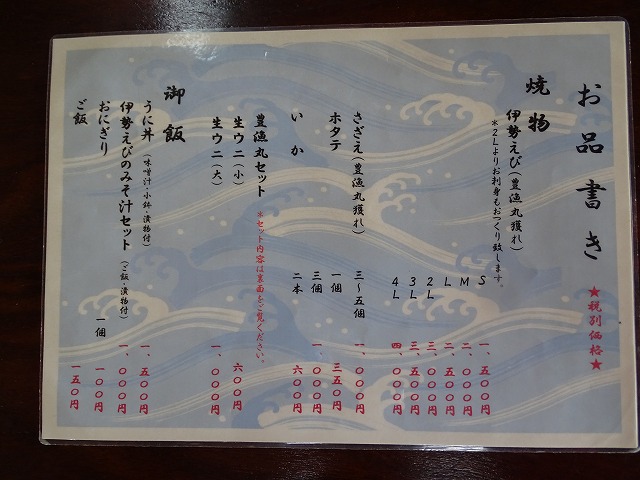 お品書き ★税別価格★
焼物
伊勢えび(豊漁丸獲れ)
※2Lよりお刺身もおつくり致します。
S 一、五〇〇円
M 二、〇〇〇円
L 二、五〇〇円
2L 三、〇〇〇円
3L 三、五〇〇円
4L 四、〇〇〇円
さざえ(豊漁丸獲れ) 三～五個 一、〇〇〇円
ホタテ 一個 三五〇円
三個 一、〇〇〇円
いか 二本 六〇〇円
豊漁丸セット ※セット内容は裏面をご覧ください。
生ウニ(小) 六〇〇円
生ウニ(大) 一、〇〇〇円
御飯
うに丼(味噌汁・小鉢・漬物付) 一、五〇〇円
伊勢えびのみそ汁セット(ご飯・漬物付) 一、〇〇〇円
おにぎり 一個 一〇〇円
ご飯 一五〇円